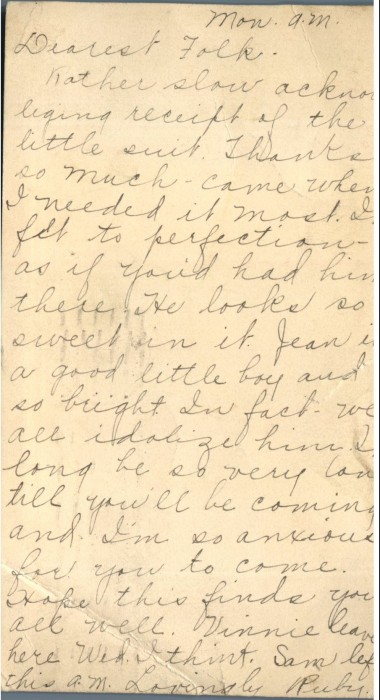 Mon. a.m.
Dearest Folk -
Rather slow acknow
leging receipt of the
little suit. Thanks
so much - came when
I needed it most. I
fit to perfection -
as if you'd had him
there. He looks so
sweet in it. Jean i
a good little boy and
so bright. In fact - we
all idolize him. I
long be so very lon
till you'll be coming
and I'm so anxious
for you to come.
Hope this finds you
all well. Vinnie leave
here Wed. I think. Sam lef
this a.m. Lovingly Ruby.